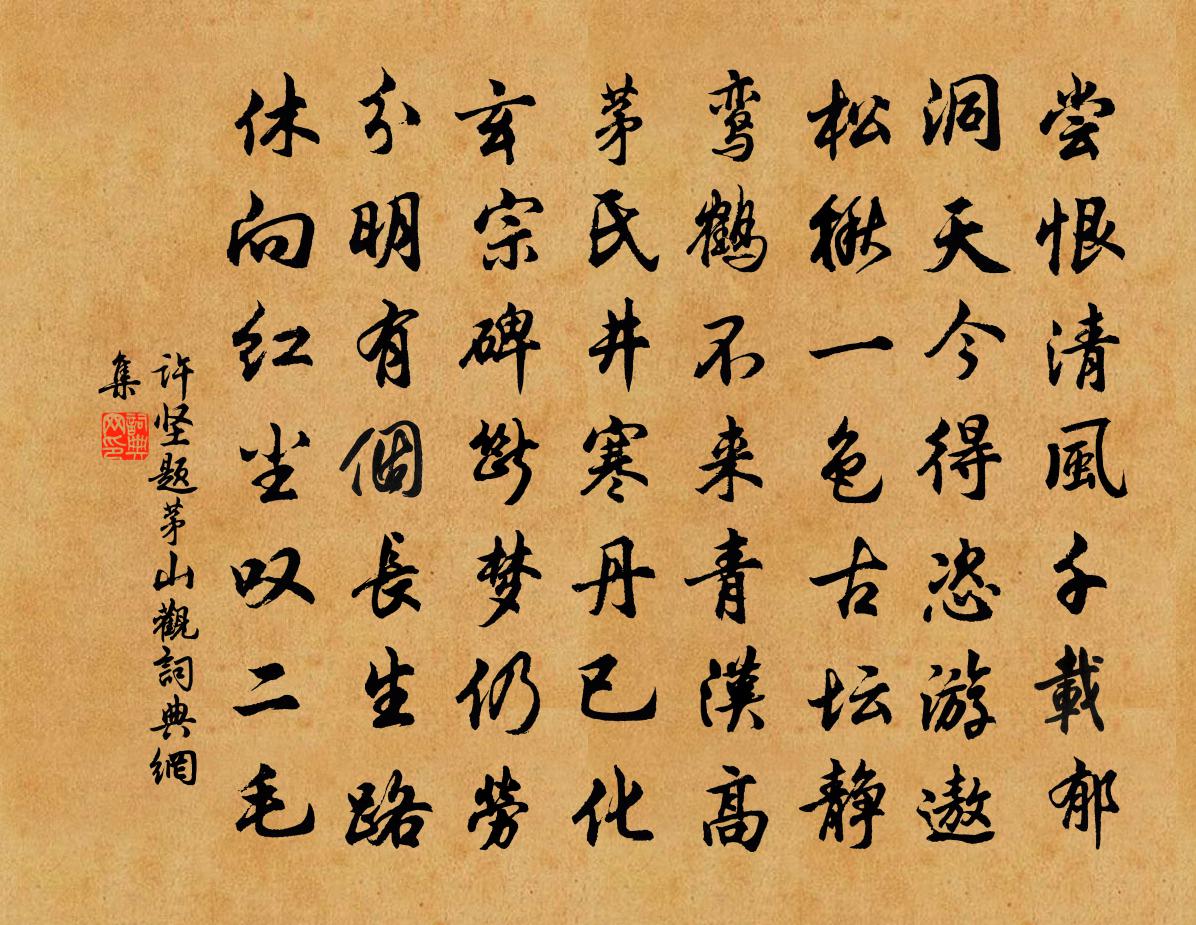 尝恨清風千載郁
洞天今得恣游遨
松楸一色古坛静
鸾鹤不来青漢高
茅氏井寒丹已化
玄宗碑断梦仍劳
分明有個長生路
休向红尘叹二毛
许坚题茅山觀詞典網
集
詞典网印